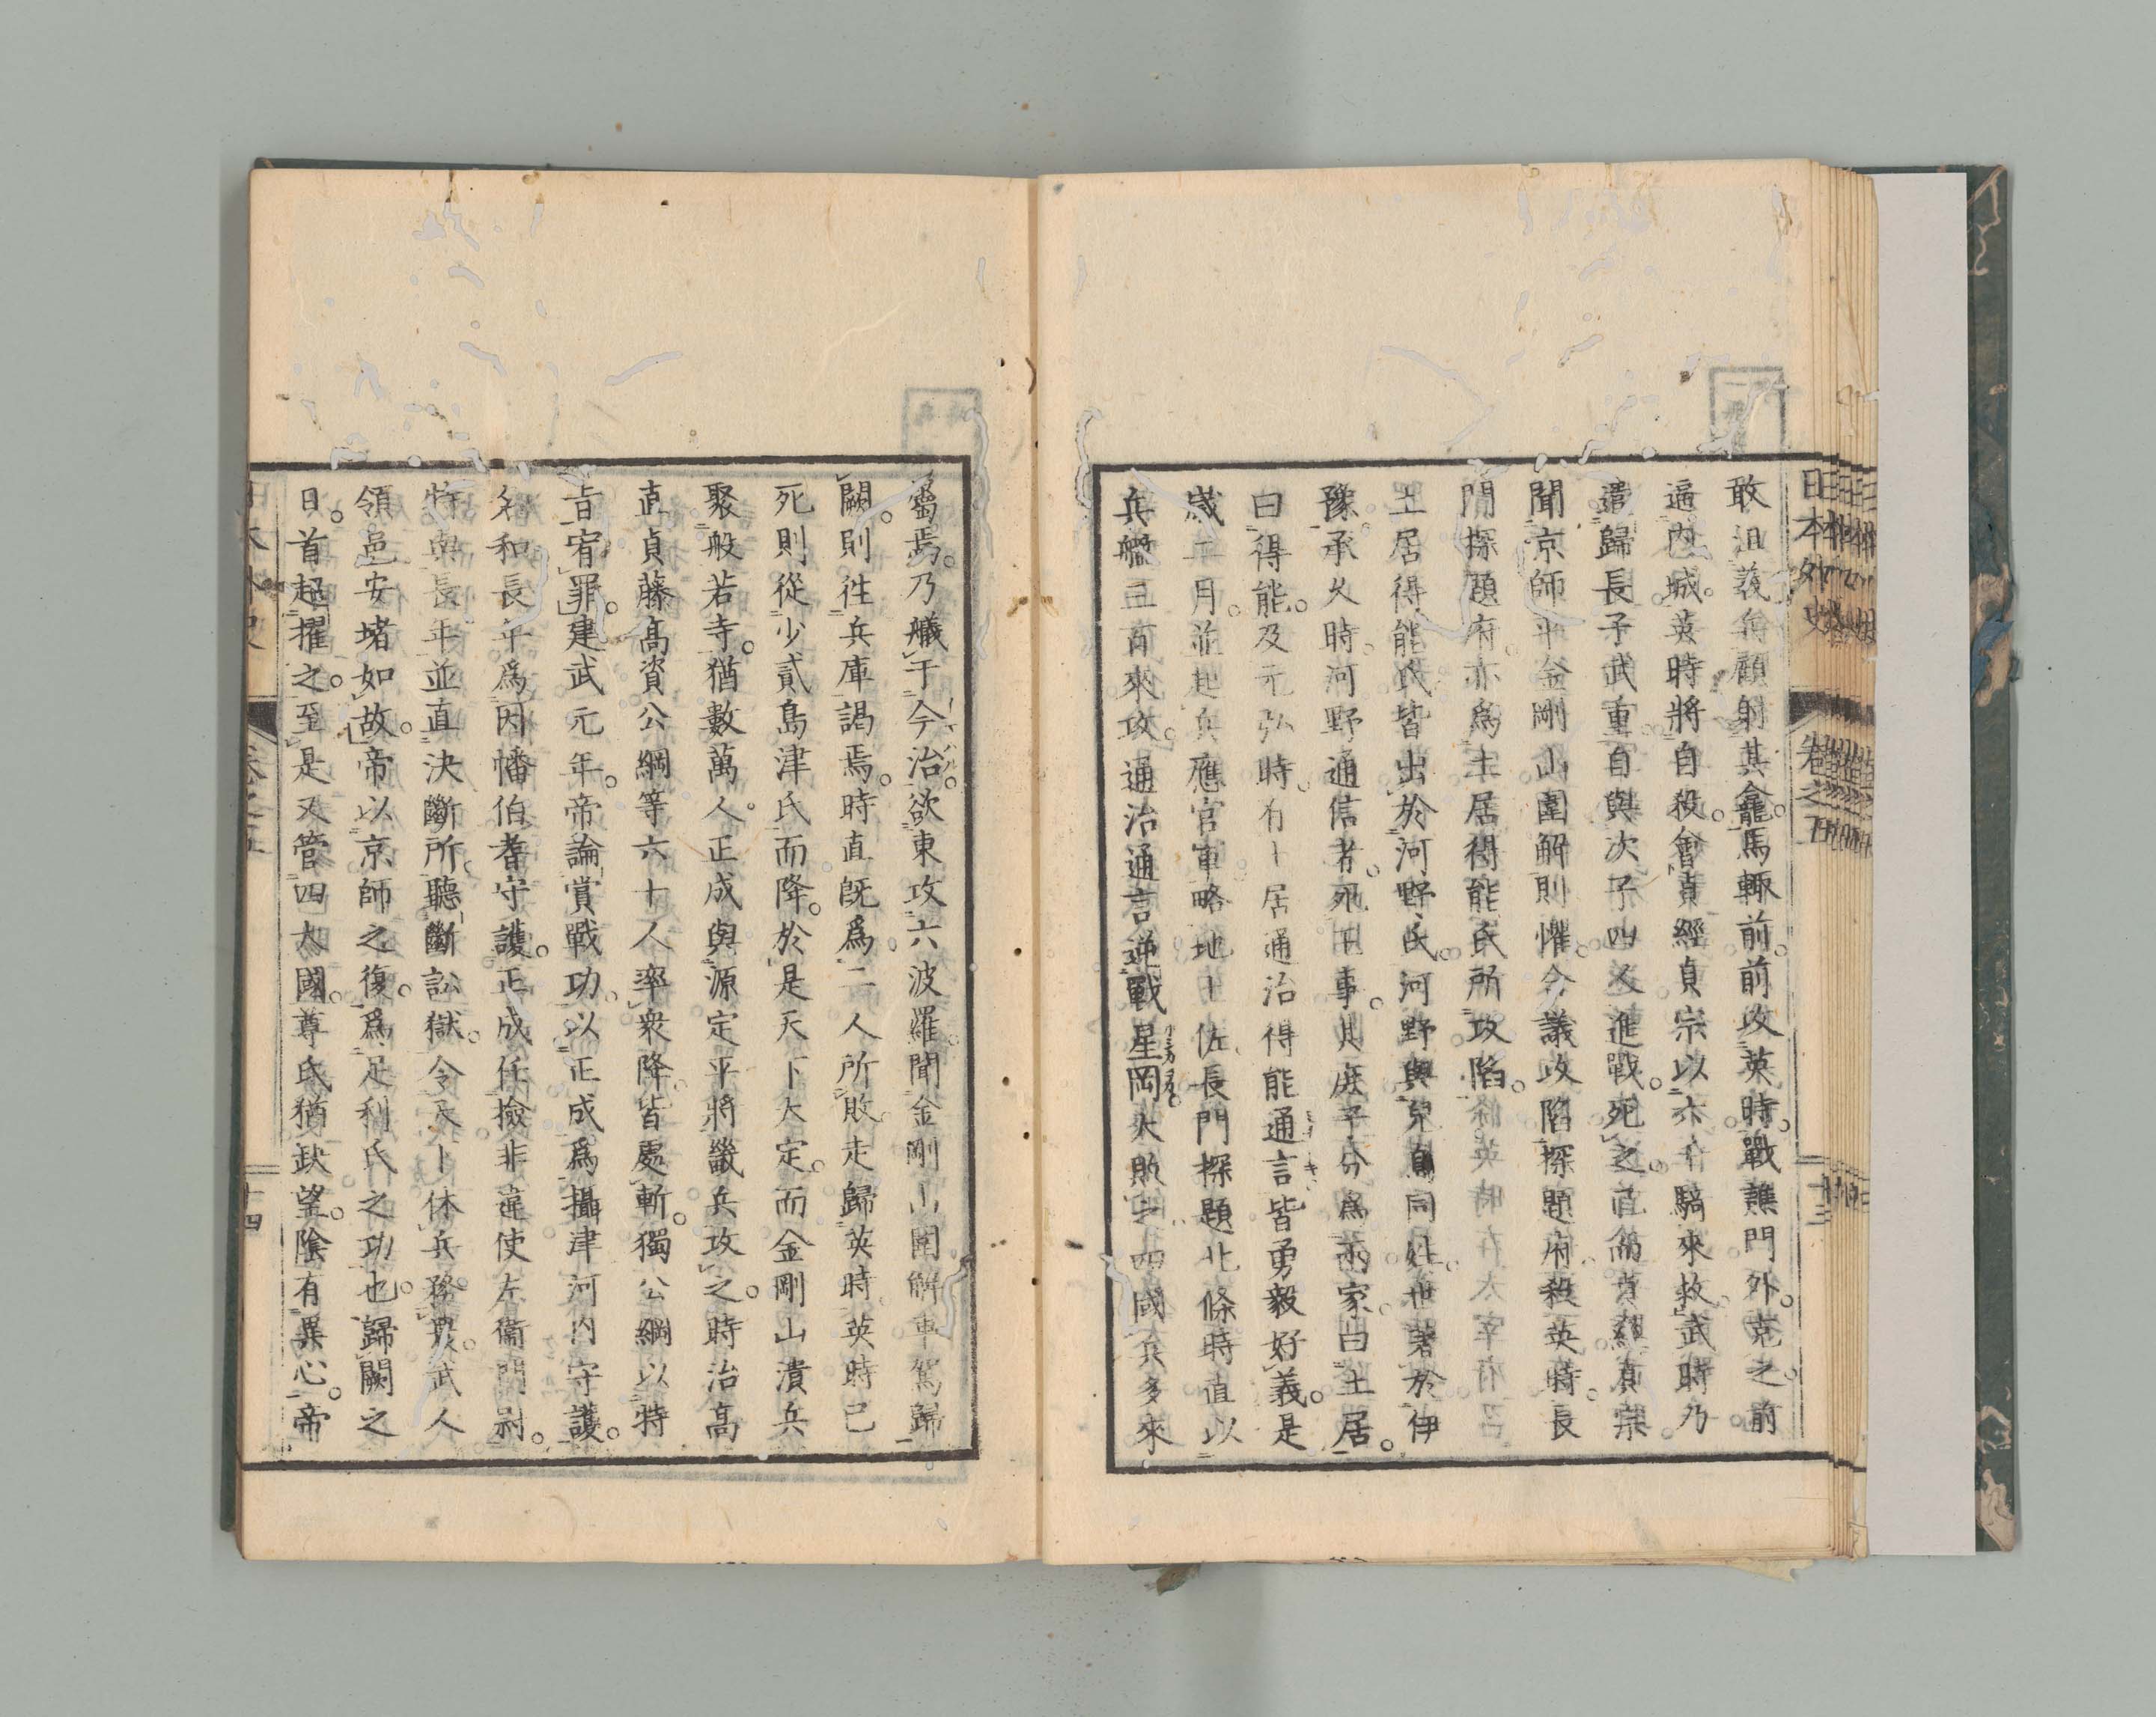 日本外史 卷之五 十三
敢沮義兵顧射其龕馬輙前前攻英時戰譙門外克之前
逼内城英時將自殺會貞經貞宗以六千騎來救武時乃
遣歸長子武重自與次子四人進戰死之直而貞經貞宗
聞京師平金剛山圍解則懼合議攻陷探題府殺英時長
門探題府亦爲土居得能氏所攻陷
土居得能氏皆出於河野氏河野與兒島同姓世著於伊
豫承久時河野通信者死王事其庶子分爲兩家曰土居
曰得能及元弘時有土居通治得能通言皆勇毅好義是
歲二月並起兵應官軍略地土佐長門探題北條時直以
兵艦三百來攻通治通言逆戰星岡大敗之四國兵多來
屬焉乃艤于今治欲東攻六波羅聞金剛山圍解車駕歸
闕則往兵庫謁焉時直既爲二人所敗走歸英時英時已
死則從少貳島津氏而降於是天下大定而金剛山潰兵
聚般若寺猶數萬人正成與源定平將畿兵攻之時治高
直貞藤高資公綱等六十人率衆降皆處斬獨公綱以特
旨宥罪建武元年帝論賞戰功以正成爲攝津河内守護
名和長年爲因幡伯耆守護正成任撿非違使左衞門尉
特與長年並直決斷所聽斷訟獄令天下休兵務農武人
領邑安堵如故帝以京師之復爲足利氏之功也歸闕之
日首超擢之至是又管四大國尊氏猶缺望陰有異心帝
十四